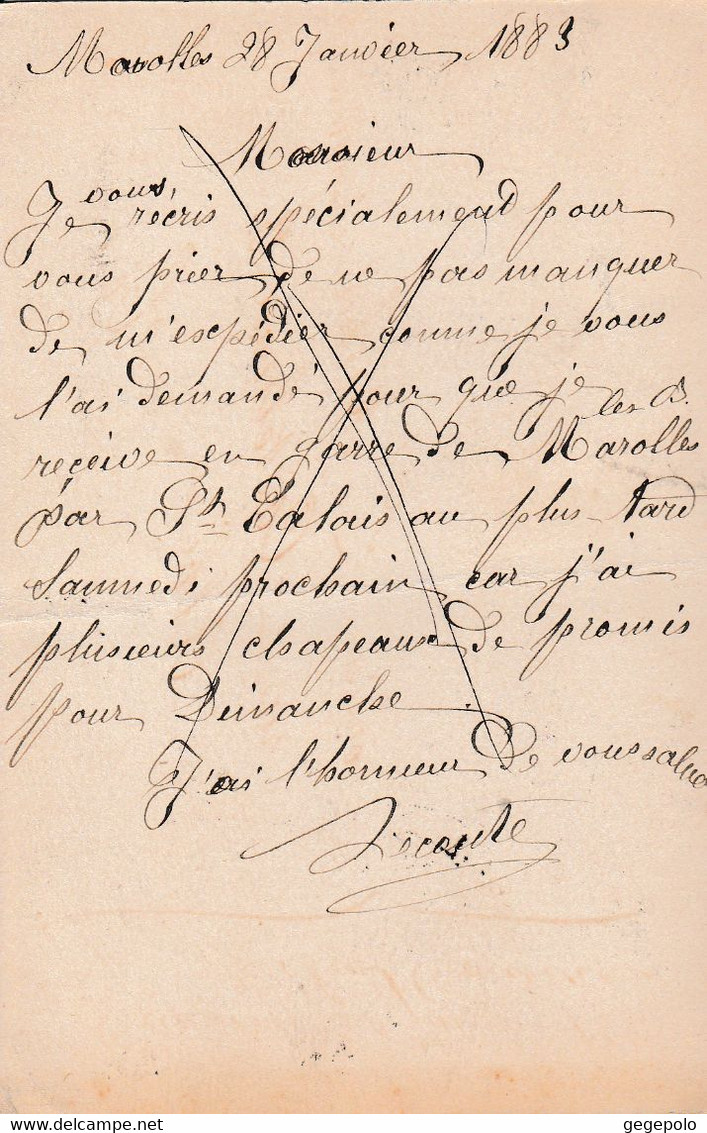 Marolles 28 Janvier 1883
Monsieur
Je vous récris spécialement pour
vous prier de ne pas manquer
de m'expédier comme je vous
l'ai demandé pour que je les
reçeive en garre de Marolles
par St Calais au plus tard
Samedi prochain car j'ai
plusieurs chapeaux de promis
pour Dimanche
J'ai l'honneur de vous saluer
delcampe.net
gegepolo